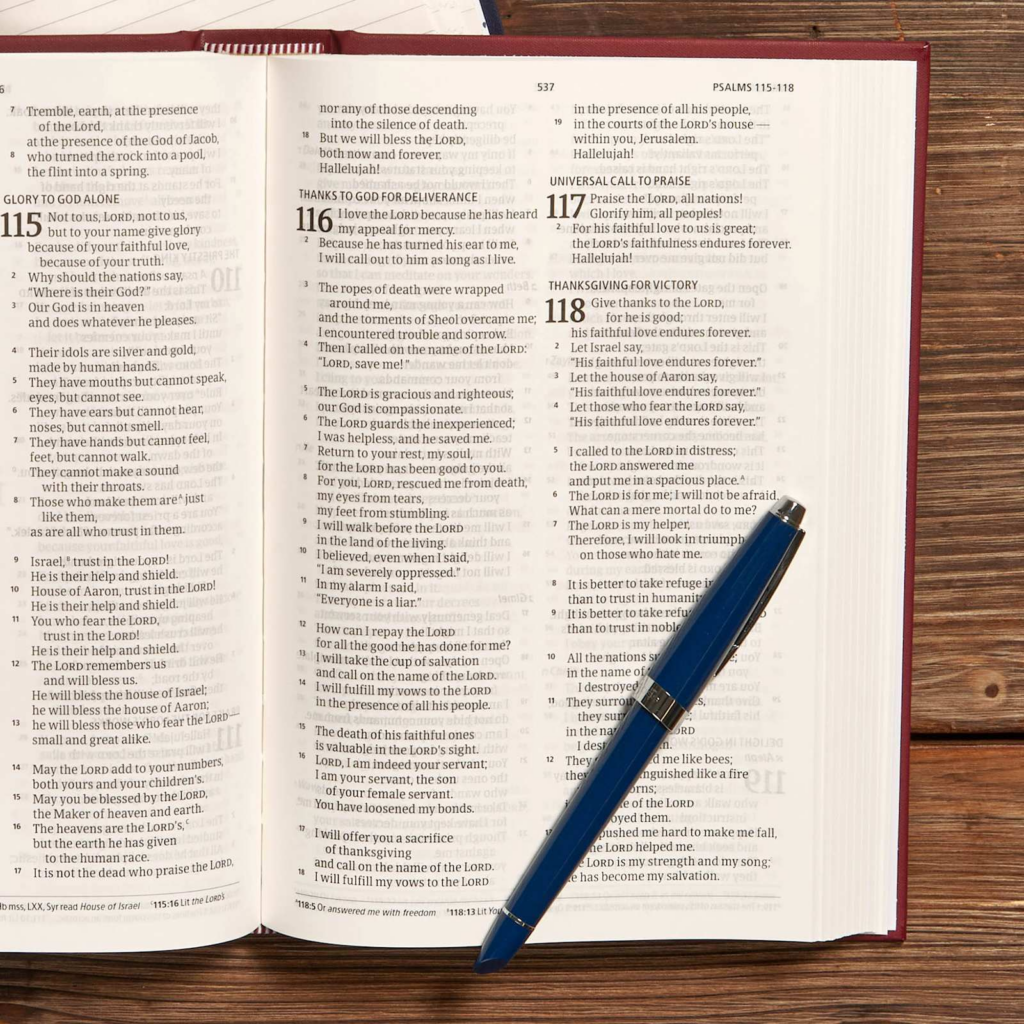 6
7 Tremble, earth, at the presence
of the LORD,
at the presence of the God of Jacob,
8 who turned the rock into a pool,
the flint into a spring.
GLORY TO GOD ALONE
115 Not to us, LORD, not to us,
but to your name give glory
because of your faithful love,
because of your truth.
2 Why should the nations say,
"Where is their God?"
3 Our God is in heaven
and does whatever he pleases.
4 Their idols are silver and gold,
made by human hands.
5 They have mouths but cannot speak,
eyes, but cannot see.
6 They have ears but cannot hear,
noses, but cannot smell.
7 They have hands but cannot feel,
feet, but cannot walk.
They cannot make a sound
with their throats.
8 Those who make them are^A just
like them,
as are all who trust in them.
9 Israel,^B trust in the LORD!
He is their help and shield.
10 House of Aaron, trust in the LORD!
He is their help and shield.
11 You who fear the LORD,
trust in the LORD!
He is their help and shield.
12 The LORD remembers us
and will bless us.
He will bless the house of Israel;
he will bless the house of Aaron;
13 he will bless those who fear the LORD —
small and great alike.
14 May the LORD add to your numbers,
both yours and your children's.
15 May you be blessed by the LORD,
the Maker of heaven and earth.
16 The heavens are the LORD's,^C
but the earth he has given
to the human race.
17 It is not the dead who praise the LORD,
mss, LXX, Syr read House of Israel ^C115:16 Lit the LORD's
537
nor any of those descending
into the silence of death.
18 But we will bless the LORD,
both now and forever.
Hallelujah!
THANKS TO GOD FOR DELIVERANCE
116 I love the LORD because he has heard
my appeal for mercy.
2 Because he has turned his ear to me,
I will call out to him as long as I live.
3 The ropes of death were wrapped
around me,
and the torments of Sheol overcame me;
I encountered trouble and sorrow.
4 Then I called on the name of the LORD:
"LORD, save me!"
5 The LORD is gracious and righteous;
our God is compassionate.
6 The LORD guards the inexperienced;
I was helpless, and he saved me.
7 Return to your rest, my soul,
for the LORD has been good to you.
8 For you, LORD, rescued me from death,
my eyes from tears,
my feet from stumbling.
9 I will walk before the LORD
in the land of the living.
10 I believed, even when I said,
"I am severely oppressed."
11 In my alarm I said,
"Everyone is a liar."
12 How can I repay the LORD
for all the good he has done for me?
13 I will take the cup of salvation
and call on the name of the LORD.
14 I will fulfill my vows to the LORD
in the presence of all his people.
15 The death of his faithful ones
is valuable in the LORD's sight.
16 LORD, I am indeed your servant;
I am your servant, the son
of your female servant.
You have loosened my bonds.
17 I will offer you a sacrifice
of thanksgiving
and call on the name of the LORD.
18 I will fulfill my vows to the LORD
^A118:5 Or answered me with freedom 118:13 Lit You
PSALMS 115-118
in the presence of all his people,
19 in the courts of the LORD's house —
within you, Jerusalem.
Hallelujah!
UNIVERSAL CALL TO PRAISE
117 Praise the LORD, all nations!
Glorify him, all peoples!
2 For his faithful love to us is great;
the LORD's faithfulness endures forever.
Hallelujah!
THANKSGIVING FOR VICTORY
118 Give thanks to the LORD,
for he is good;
his faithful love endures forever.
2 Let Israel say,
"His faithful love endures forever."
3 Let the house of Aaron say,
"His faithful love endures forever."
4 Let those who fear the LORD say,
"His faithful love endures forever."
5 I called to the LORD in distress;
the LORD answered me
and put me in a spacious place.^A
6 The LORD is for me; I will not be afraid.
What can a mere mortal do to me?
7 The LORD is my helper,
Therefore, I will look in triumph
on those who hate me.
8 It is better to take refuge
than to trust in
9 It is better to take
than to trust in
10 All the nations
in the name of
I destroyed
11 They
they
in the LORD
I
12 They me like bees;
like a fire
of the LORD
them.
pushed me hard to make me fall,
LORD helped me.
LORD is my strength and my song;
has become my salvation.